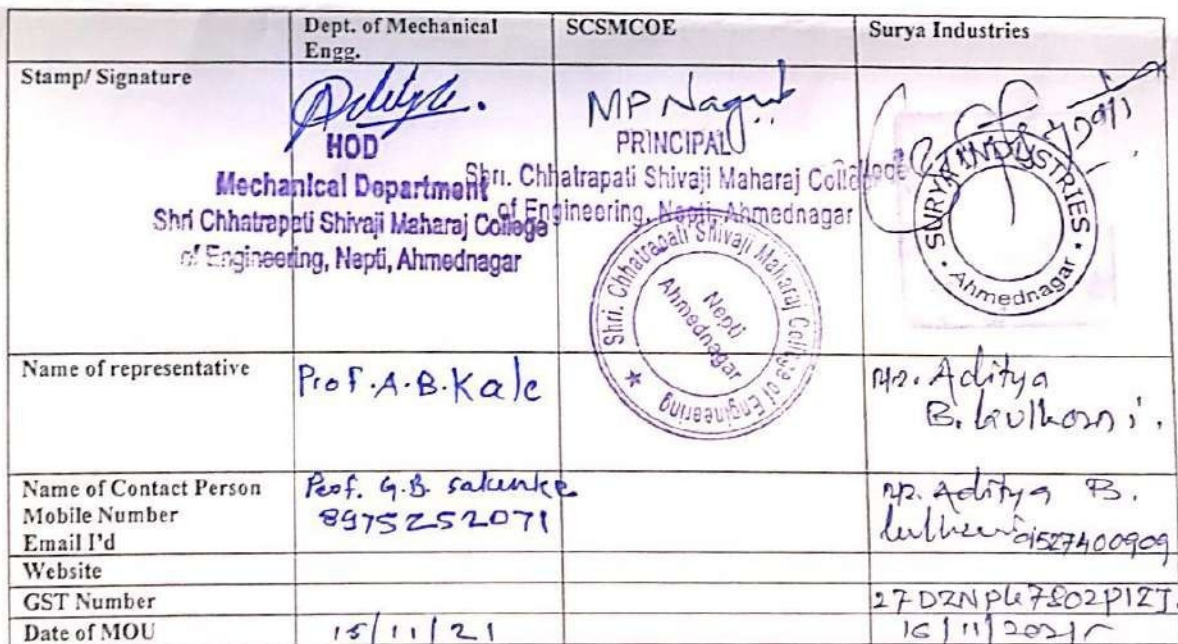 Dept. of Mechanical Engg.
SCSMCOE
Surya Industries
Stamp/ Signature
Aditya.
HOD
Mechanical Department
Shri Chhatrapati Shivaji Maharaj College
of Engineering, Nepti, Ahmednagar
MP Nagut
PRINCIPAL
Shri. Chhatrapati Shivaji Maharaj College
of Engineering, Nepti, Ahmednagar
Shri. Chhatrapati Shivaji Maharaj College of Engineering
Nepti
Ahmednagar
SURYA INDUSTRIES
Ahmednagar
Name of representative
Prof. A.B. Kale
Mr. Aditya
B. Kulkarni.
Name of Contact Person
Mobile Number
Email I'd
Prof. G.B. Salunke
8975252071
Mr. Aditya B.
Kulkarni
Website
GST Number
Date of MOU
15/11/21